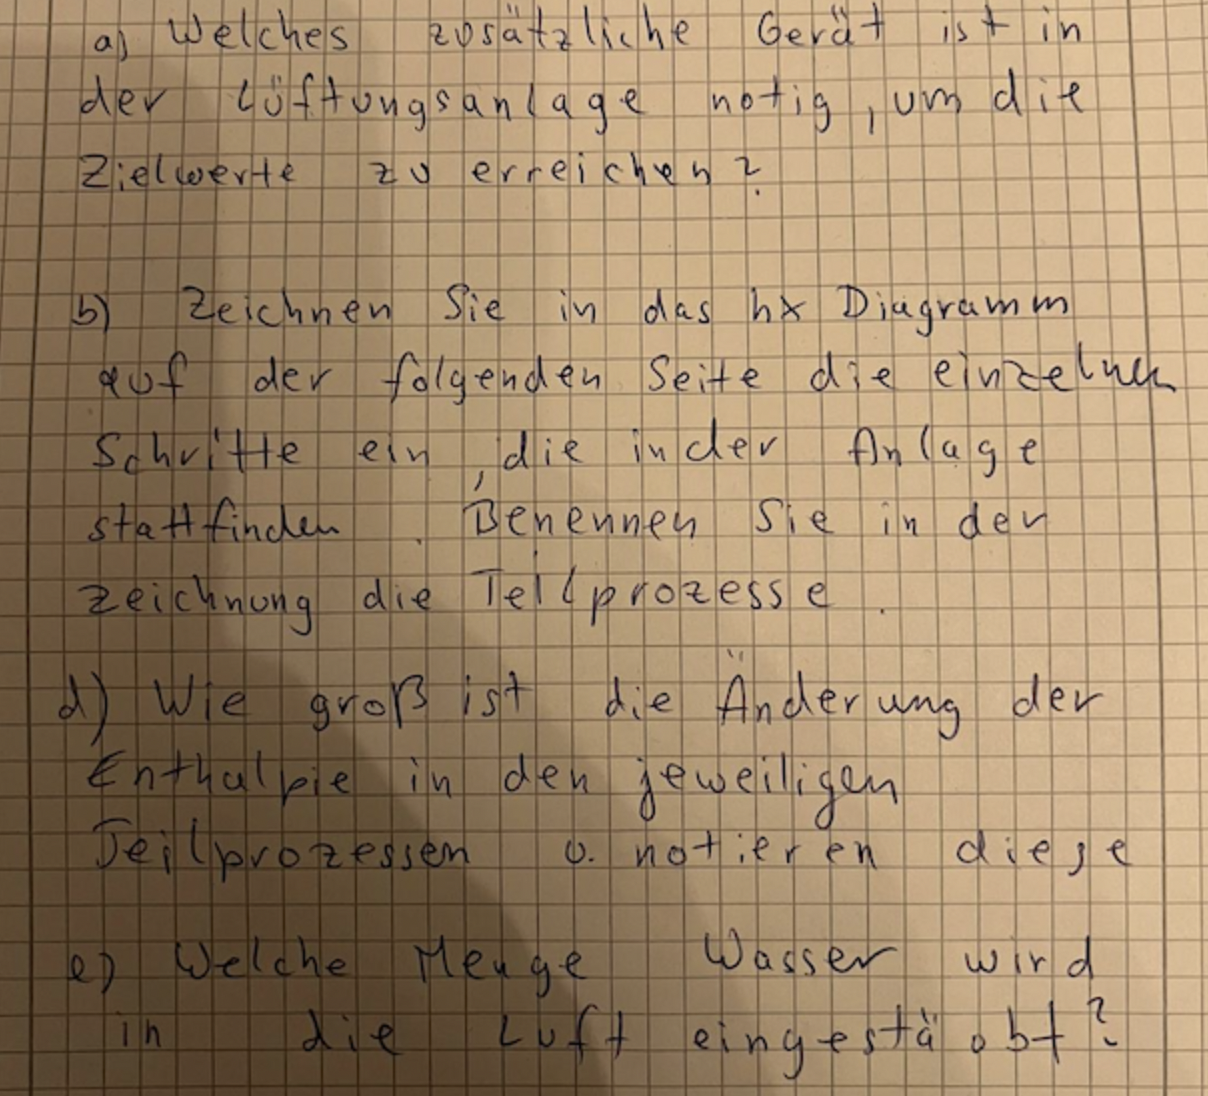 a) Welches zusätzliche Gerät ist in
der Lüftungsanlage notig, um die
Zielwerte zu erreichen?
b) Zeichnen Sie in das hx Diagramm
auf der folgenden Seite die einzelnen
Schritte ein, die in der Anlage
stattfinden. Benennen Sie in der
Zeichnung die Teilprozesse.
d) Wie groß ist die Änderung der
Enthalpie in den jeweiligen
Teilprozessen u. notieren diese
e) Welche Menge Wasser wird
in die Luft eingestäubt?